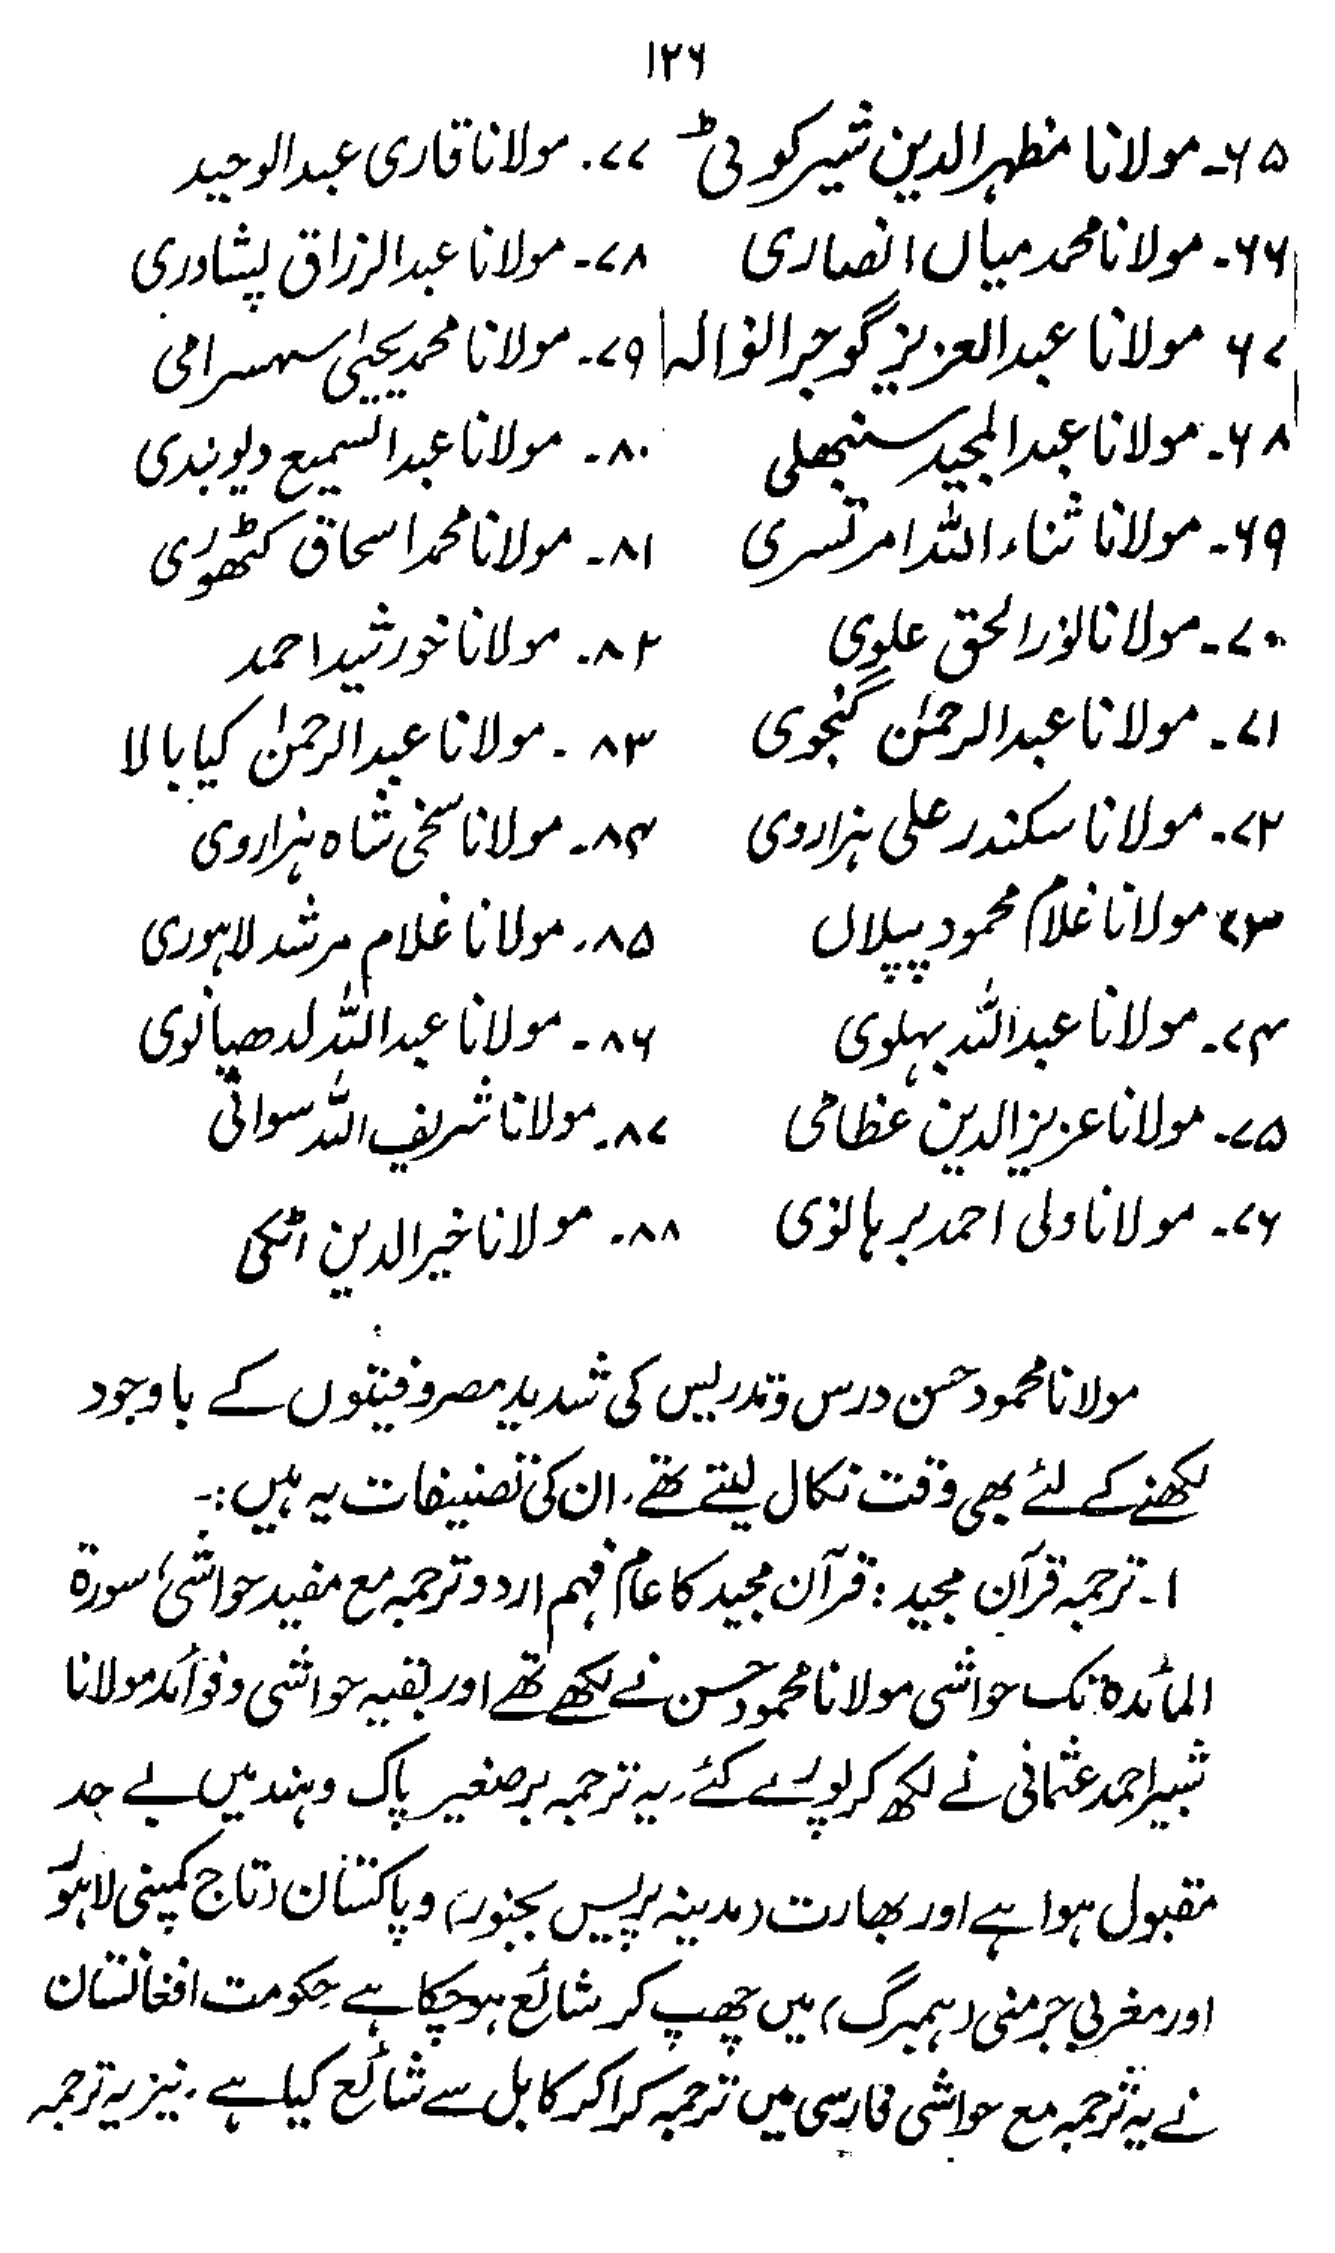 ۱۲۶
۶۵۔ مولانا مظہرالدین شیرکوٹی
۶۶۔ مولانا محمد میاں انصاری
۶۷ مولانا عبدالعزیز گوجرانوالہ
۶۸۔ مولانا عبدالمجید سنبھلی
۶۹۔ مولانا ثناء اللہ امرتسری
۷۰۔ مولانا نورالحق علوی
۷۱۔ مولانا عبدالرحمٰن گنجوی
۷۲۔ مولانا سکندر علی ہزاروی
۷۳ مولانا غلام محمود پپلاں
۷۴۔ مولانا عبداللہ بہلوی
۷۵۔ مولانا عزیزالدین عظامی
۷۶۔ مولانا ولی احمد برہانوی
۷۷۔ مولانا قاری عبدالوحید
۷۸۔ مولانا عبدالرزاق پشاوری
۷۹۔ مولانا محمد یحیٰی سہسرامی
۸۰۔ مولانا عبدالسمیع دیوبندی
۸۱۔ مولانا محمد اسحاق کٹھوری
۸۲۔ مولانا خورشید احمد
۸۳۔ مولانا عبدالرحمٰن کیابالا
۸۴۔ مولانا سخی شاہ ہزاروی
۸۵۔ مولانا غلام مرشد لاہوری
۸۶۔ مولانا عبداللہ لدھیانوی
۸۷۔ مولانا شریف اللہ سواتی
۸۸۔ مولانا خیرالدین اٹکی
مولانا محمود حسن درس و تدریس کی شدید مصروفیتوں کے باوجود
لکھنے کے لئے بھی وقت نکال لیتے تھے۔ ان کی تصنیفات یہ ہیں:۔
۱۔ ترجمہ قرآن مجید: قرآن مجید کا عام فہم اردو ترجمہ مع مفید حواشی، سورۃ
المائدۃ تک حواشی مولانا محمود حسن نے لکھے تھے اور بقیہ حواشی و فوائد مولانا
شبیر احمد عثمانی نے لکھ کر پورے کئے۔ یہ ترجمہ برصغیر پاک و ہند میں بے حد
مقبول ہوا ہے اور بھارت (مدینہ پریس بجنور) و پاکستان (تاج کمپنی لاہور
اور مغربی جرمنی (ہمبرگ) میں چھپ کر شائع ہوچکا ہے حکومت افغانستان
نے یہ ترجمہ مع حواشی فارسی میں ترجمہ کرا کر کابل سے شائع کیا ہے۔ نیز یہ ترجمہ